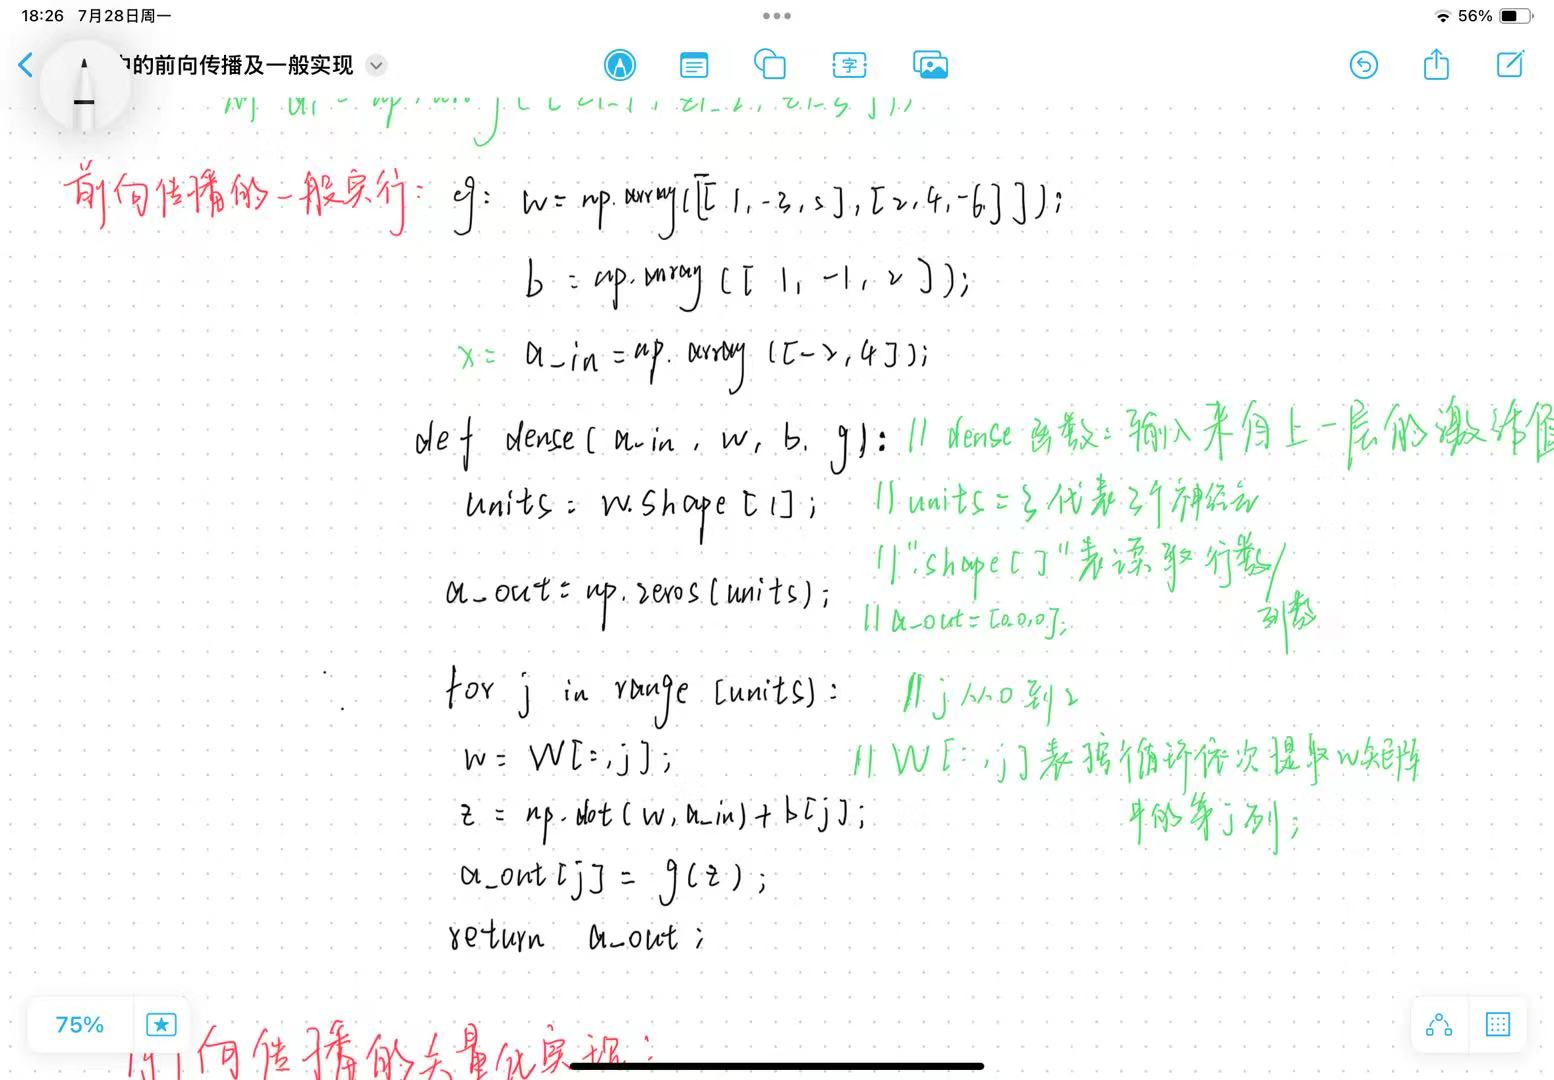 18:26 7月28日周一
56%
中的前向传播及一般实现
前向传播的一般实行: eg: w = np.array([[1,-3,5],[2,4,-6]]);
b = np.array([1,-1,2]);
x = a_in = np.array([-2,4]);
def dense(a_in, w, b, g): // dense 函数:输入来自上一层的激活值
units = w.shape[1]; // units = 3 代表3个神经元
// ".shape[]"表读取行数/
列数
a_out = np.zeros(units); // a_out = [0,0,0];
for j in range(units): // j 从0到2
w = W[:,j]; // W[:,j]表按循环依次提取w矩阵
中的第j列;
z = np.dot(w,a_in)+b[j];
a_out[j] = g(z);
return a_out;
75%
前向传播的矢量化实现: